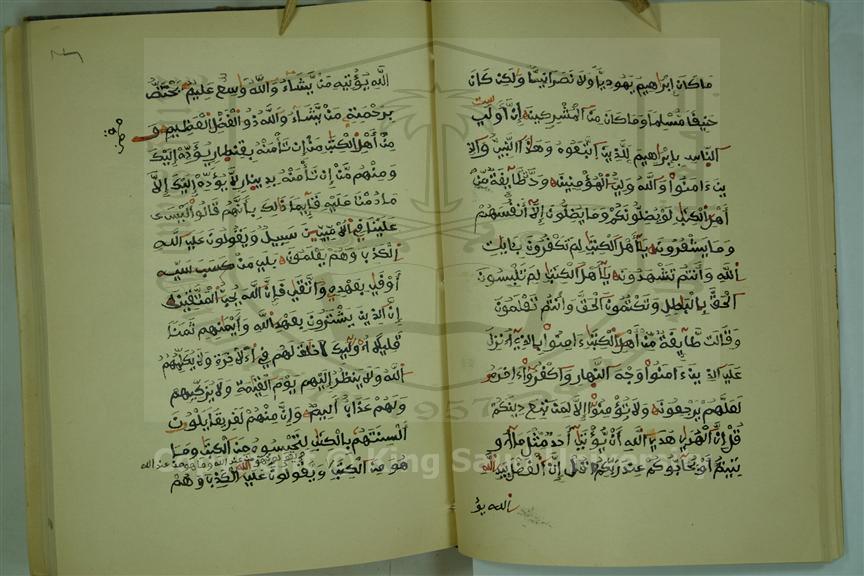 مَا كَانَ إِبْرَاهِيمُ يَهُودِيًّا وَلَا نَصْرَانِيًّا وَلَٰكِن كَانَ
حَنِيفًا مُّسْلِمًا وَمَا كَانَ مِنَ الْمُشْرِكِينَ إِنَّ أَوْلَى
النَّاسِ بِإِبْرَاهِيمَ لَلَّذِينَ اتَّبَعُوهُ وَهَٰذَا النَّبِيُّ وَالَّذِ
ينَ ءَامَنُوا وَاللَّهُ وَلِيُّ الْمُؤْمِنِينَ وَدَّت طَّآئِفَةٌ مِّنْ
أَهْلِ الْكِتَٰبِ لَوْ يُضِلُّونَكُمْ وَمَا يُضِلُّونَ إِلَّا أَنفُسَهُمْ
وَمَا يَشْعُرُونَ يَا أَهْلَ الْكِتَٰبِ لِمَ تَكْفُرُونَ بِـَٔايَٰتِ
اللَّهِ وَأَنتُمْ تَشْهَدُونَ يَا أَهْلَ الْكِتَٰبِ لِمَ تَلْبِسُونَ
الْحَقَّ بِالْبَٰطِلِ وَتَكْتُمُونَ الْحَقَّ وَأَنتُمْ تَعْلَمُونَ
وَقَالَت طَّآئِفَةٌ مِّنْ أَهْلِ الْكِتَٰبِ ءَامِنُوا بِالَّذِي أُنزِلَ
عَلَى الَّذِينَ ءَامَنُوا وَجْهَ النَّهَارِ وَاكْفُرُوا ءَاخِرَهُ
لَعَلَّهُمْ يَرْجِعُونَ وَلَا تُؤْمِنُوا إِلَّا لِمَن تَبِعَ دِينَكُمْ
قُلْ إِنَّ الْهُدَىٰ هُدَى اللَّهِ أَن يُؤْتَىٰ أَحَدٌ مِّثْلَ مَا أُو
تِيتُمْ أَوْ يُحَآجُّوكُمْ عِندَ رَبِّكُمْ قُلْ إِنَّ الْفَضْلَ بِيَدِ اللَّهِ
اللَّهِ يُؤْ
اللَّهِ يُؤْتِيهِ مَن يَّشَآءُ وَاللَّهُ وَٰسِعٌ عَلِيمٌ يَخْتَصُّ
بِرَحْمَتِهِ مَن يَّشَآءُ وَاللَّهُ ذُو الْفَضْلِ الْعَظِيمِ وَ
مِنْ أَهْلِ الْكِتَٰبِ مَنْ إِن تَأْمَنْهُ بِقِنطَارٍ يُؤَدِّهِ إِلَيْكَ
وَمِنْهُم مَّنْ إِن تَأْمَنْهُ بِدِينَارٍ لَّا يُؤَدِّهِ إِلَيْكَ إِلَّا
مَا دُمْتَ عَلَيْهِ قَآئِمًا ذَٰلِكَ بِأَنَّهُمْ قَالُوا لَيْسَ
عَلَيْنَا فِي الْأُمِّيِّينَ سَبِيلٌ وَيَقُولُونَ عَلَى اللَّهِ
الْكَذِبَ وَهُمْ يَعْلَمُونَ بَلَىٰ مَنْ
أَوْفَىٰ بِعَهْدِهِ وَاتَّقَىٰ فَإِنَّ اللَّهَ يُحِبُّ الْمُتَّقِينَ
إِنَّ الَّذِينَ يَشْتَرُونَ بِعَهْدِ اللَّهِ وَأَيْمَٰنِهِمْ ثَمَنًا
قَلِيلًا أُولَٰئِكَ لَا خَلَٰقَ لَهُمْ فِي الْأَخِرَةِ وَلَا يُكَلِّمُهُمُ
اللَّهُ وَلَا يَنظُرُ إِلَيْهِمْ يَوْمَ الْقِيَٰمَةِ وَلَا يُزَكِّيهِمْ
وَلَهُمْ عَذَابٌ أَلِيمٌ وَإِنَّ مِنْهُمْ لَفَرِيقًا يَلْوُونَ
أَلْسِنَتَهُم بِالْكِتَٰبِ لِتَحْسِبُوهُ مِنَ الْكِتَٰبِ وَمَا
هُوَ مِنَ الْكِتَٰبِ وَيَقُولُونَ عَلَى اللَّهِ الْكَذِبَ وَهُمْ
1957
Copyright © King Saud University